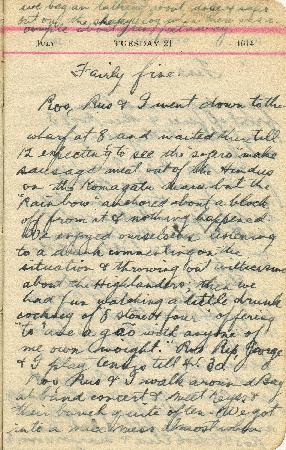 we began
July TUESDAY 21 1914
Fairly fine
Ros, Rus & I went down to the
wharf at 8 and waited there till
12 expecting to see the sojers make
sausage meat out of the Hindus
on the Komagatu Maru but the
"Rainbow" anchored about a block
off from it & nothing happened.
We enjoyed ourselves listening
to a drunk commenting on the
situation & throwing out witticisms
about the Highlanders, then we
had fun watching a little drunk
cockney of 8 stone & four offering
to "ave a go with anyone of
me own weight." Ros, George
& I play tennis till
Ros Rus & I walk around Bay
at band concert & meet
their bunch quite often. We got
into a mess almost when